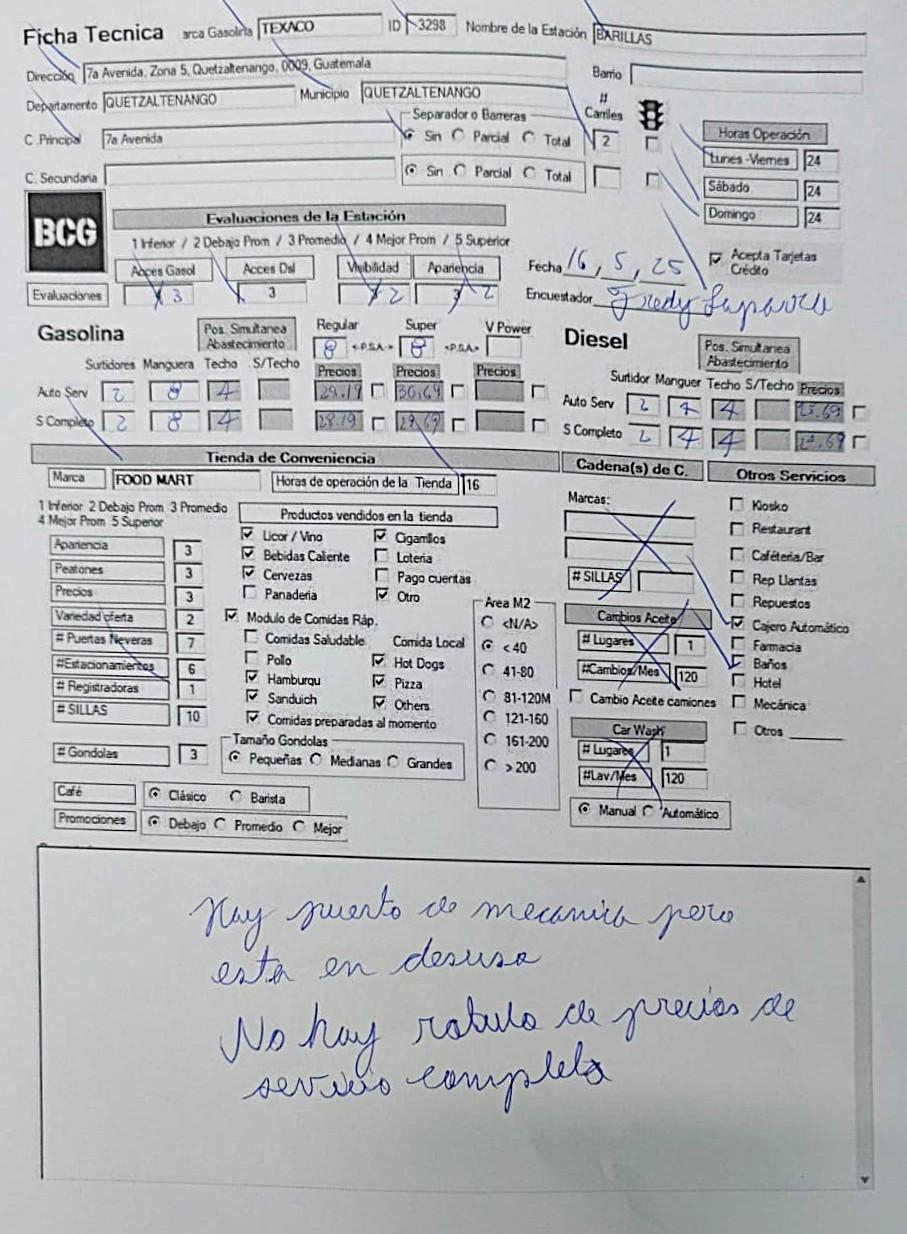 Ficha Tecnica arca Gasolina TEXACO ID 3298 Nombre de la Estación BARILLAS
Dirección 7a Avenida, Zona 5, Quetzaltenango, 0009, Guatemala Barrio
Departamento QUETZALTENANGO Municipio QUETZALTENANGO # Carriles
C. Principal 7a Avenida Separador o Barreras Sin Parcial Total 2
C. Secundaria Sin Parcial Total
Horas Operación
Lunes -Viernes 24
Sábado 24
Domingo 24
BCG
Evaluaciones de la Estación
1 Inferior / 2 Debajo Prom / 3 Promedio / 4 Mejor Prom / 5 Superior
Acces Gasol Acces Dsl Visibilidad Apariencia
Evaluaciones 3 3 2 2
Fecha 16, 5, 25
Acepta Tarjetas Crédito
Encuestador Fredy
Gasolina Pos. Simultanea Abastecimiento
Regular Super V Power
8 <-P.S.A.-> 8 <-P.S.A.->
Surtidores Manguera Techo S/Techo Precios Precios Precios
Auto Serv 2 8 4 29.19 30.69
S Completo 2 8 4 28.19 29.69
Diesel Pos. Simultanea Abastecimiento
Surtidor Manguer Techo S/Techo Precios
Auto Serv 2 4 4
S Completo 2 4 4
Tienda de Conveniencia
Marca FOOD MART Horas de operación de la Tienda 16
1 Inferior 2 Debajo Prom 3 Promedio
4 Mejor Prom 5 Superior
Apariencia 3
Peatones 3
Precios 3
Variedad oferta 2
# Puertas Neveras 7
#Estacionamientos 6
# Registradoras 1
# SILLAS 10
# Gondolas 3
Productos vendidos en la tienda
Licor / Vino Cigarrillos
Bebidas Caliente Loteria
Cervezas Pago cuentas
Panaderia Otro
Modulo de Comidas Ráp.
Comidas Saludable Comida Local
Pollo Hot Dogs
Hamburqu Pizza
Sanduich Others
Comidas preparadas al momento
Tamaño Gondolas
Pequeñas Medianas Grandes
Café Clásico Barista
Promociones Debajo Promedio Mejor
Área M2
<N/A>
< 40
41-80
81-120M
121-160
161-200
> 200
Cadena(s) de C.
Marcas:
# SILLAS
Cambios Aceite
# Lugares 1
#Cambios/Mes 120
Cambio Aceite camiones
Car Wash
# Lugares 1
#Lav/Mes 120
Manual Automático
Otros Servicios
Kiosko
Restaurant
Cafétéria/Bar
Rep Llantas
Repuestos
Cajero Automático
Farmacia
Baños
Hotel
Mecánica
Otros
Hay puerto de mecanica pero
esta en desuso
No hay rotulo de precios de
servicio completo